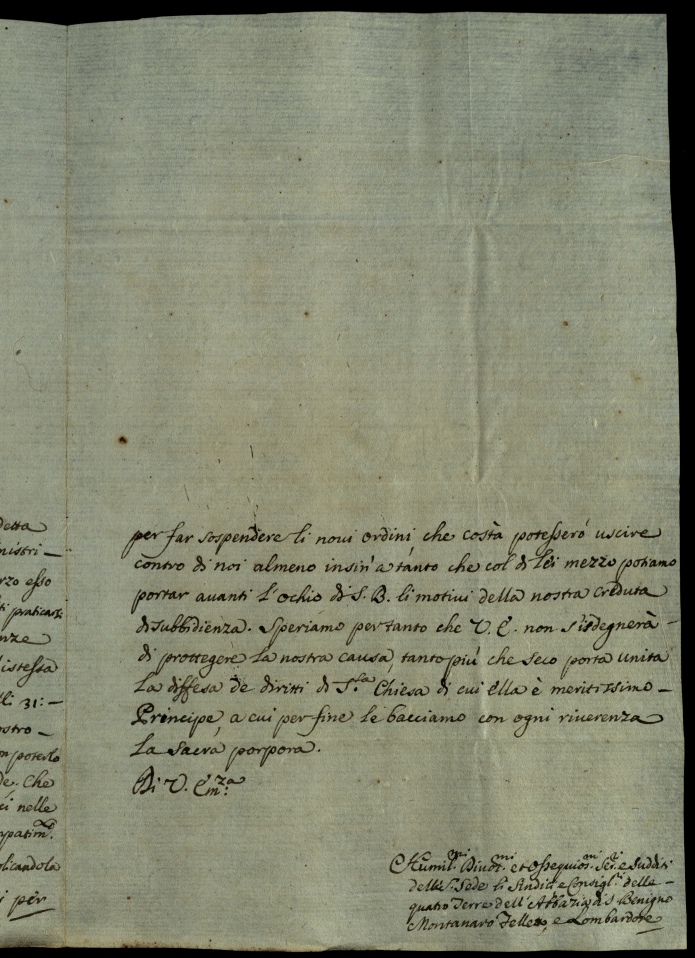 detta
nistri –
rzo esso
ti praticarsi
nze
istessa
li 31: –
ostro –
n poterlo
de. Che
ci nelle
licandola
i per
per far sospendere li novi ordini che costà potesseró uscire
contro di noi almeno insin' a tanto che col di lei mezzo potiamo
portar avanti l'ochio di S. B. li motivi della nostra creduta
disubbidienza. Speriamo pertanto che V. E. non s'isdegnerà –
di prottegere la nostra causa, tanto piú che seco porta unita
la diffesa de diritti di S.ta Chiesa di cui Ella è meritissimo –
Principe, a cui per fine le bacciamo con ogni riverenza
la sacra porpora.
Di V. Em.za
Humil.mi Divot.mi et ossequios.mi Ser.i e sudditi
della S. Sede li Sindici e Consigl.ri delle –
quatro Terre dell'Abbazia di S Benigno
Montanaro Felleto, e Lombardore